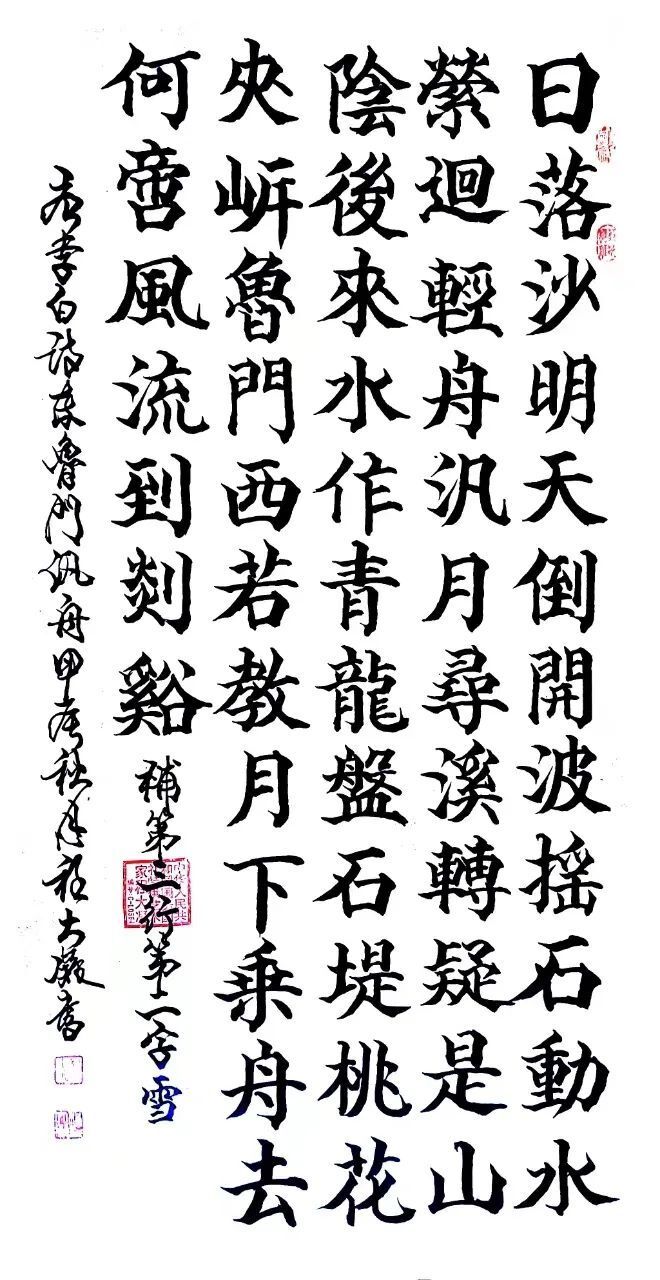 日落沙明天倒開波揺石動水
縈迴輕舟汎月尋溪轉疑是山
陰後來水作青龍盤石堤桃花
夾岍魯門西若教月下乗舟去
何啻風流到剡谿
補第三行第二字雪
右李白詩東魯門汎舟甲辰秋月程大嚴書